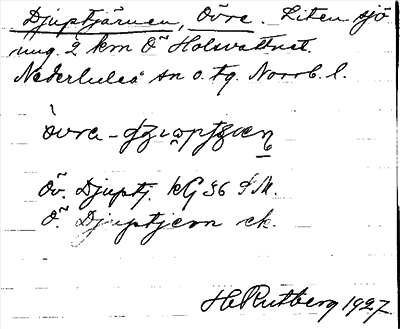 Djuptjärnen, Övre. Liten sjö
ung. 2 km Ö Holsvattnet.
Nederluleå sn o. tg. Norrb. l.
Öv. Djuptj. kG 36 S.M.
Ö. Djuptjern ek.
H Rutberg 1927